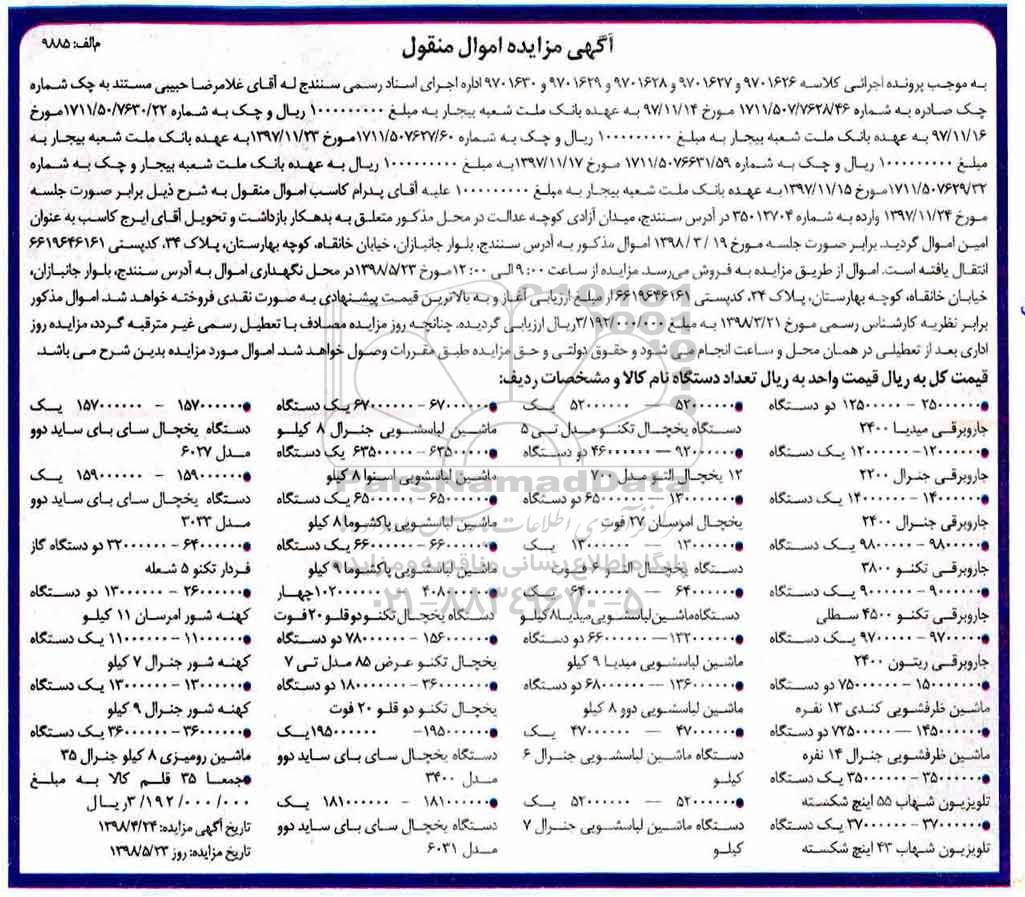 آگهی مزایده اموال منقول
م‌الف: ۹۸۸۵
به موجب پرونده اجرائی کلاسه ۹۷۰۱۶۲۶ و ۹۷۰۱۶۲۷ و ۹۷۰۱۶۲۸ و ۹۷۰۱۶۲۹ و ۹۷۰۱۶۳۰ اداره اجرای اسناد رسمی سنندج له آقای غلامرضا حبیبی مستند به چک شماره
چک صادره به شماره ۱۷۱۱/۵۰۷/۷۶۲۸/۴۶ مورخ ۹۷/۱۱/۱۴ به عهده بانک ملت شعبه بیجار به مبلغ ۱۰۰۰۰۰۰۰۰۰ ریال و چک به شماره ۱۷۱۱/۵۰/۷۶۳۰/۲۲مورخ
۹۷/۱۱/۱۶ به عهده بانک ملت شعبه بیجار به مبلغ ۱۰۰۰۰۰۰۰۰۰ ریال و چک به شماره ۱۷۱۱/۵۰۷۶۲۷/۶۰مورخ ۱۳۹۷/۱۱/۲۳به عهده بانک ملت شعبه بیجار به
مبلغ ۱۰۰۰۰۰۰۰۰۰ ریال و چک به شماره ۱۷۱۱/۵۰۷۶۶۳۱/۵۹ مورخ ۱۳۹۷/۱۱/۱۷به مبلغ ۱۰۰۰۰۰۰۰۰۰ ریال به عهده بانک ملت شعبه بیجار و چک به شماره
۱۷۱۱/۵۰۷۶۲۹/۳۲مورخ ۱۳۹۷/۱۱/۱۵به عهده بانک ملت شعبه بیجار به مبلغ ۱۰۰۰۰۰۰۰۰۰ علیه آقای پدرام کاسب اموال منقول به شرح ذیل برابر صورت جلسه
مورخ ۱۳۹۷/۱۱/۲۴ وارده به شماره ۳۵۰۱۳۷۰۴ در آدرس سنندج، میدان آزادی کوچه عدالت در محل مذکور متعلق به بدهکار بازداشت و تحویل آقای ایرج کاسب به عنوان
امین اموال گردید. برابر صورت جلسه مورخ ۱۹ / ۳ / ۱۳۹۸ اموال مذکور به آدرس سنندج، بلوار جانبازان، خیابان خانقاه، کوچه بهارستان، پلاک ۳۴، کدپستی ۶۶۱۹۶۴۶۱۶۱
انتقال یافته است. اموال از طریق مزایده به فروش می‌رسد. مزایده از ساعت ۹:۰۰ الی ۱۲:۰۰مورخ ۱۳۹۸/۵/۲۳در محل نگهداری اموال به آدرس سنندج، بلوار جانبازان،
خیابان خانقاه، کوچه بهارستان، پلاک ۳۴، کدپستی ۶۶۱۹۶۴۶۱۶۱ از مبلغ ارزیابی آغاز و به بالاترین قیمت پیشنهادی به صورت نقدی فروخته خواهد شد. اموال مذکور
برابر نظریه کارشناس رسمی مورخ ۱۳۹۸/۳/۲۱ به مبلغ ۳/۱۹۲/۰۰۰/۰۰۰ریال ارزیابی گردیده. چنانچه روز مزایده مصادف با تعطیل رسمی غیر مترقبه گردد، مزایده روز
اداری بعد از تعطیلی در همان محل و ساعت انجام می شود و حقوق دولتی و حق مزایده طبق مقررات وصول خواهد شد. اموال مورد مزایده بدین شرح می باشد.
قیمت کل به ریال قیمت واحد به ریال تعداد دستگاه نام کالا و مشخصات ردیف:
●۲۵۰۰۰۰۰۰ - ۱۲۵۰۰۰۰۰ دو دستگاه
جاروبرقی میدیا ۲۴۰۰
●۱۲۰۰۰۰۰۰ - ۱۲۰۰۰۰۰۰ یک دستگاه
جاروبرقی جنرال ۲۲۰۰
●۱۴۰۰۰۰۰۰ - ۱۴۰۰۰۰۰۰ یک دستگاه
جاروبرقی جنرال ۲۴۰۰
●۹۸۰۰۰۰۰ - ۹۸۰۰۰۰۰ یک دستگاه
جاروبرقی تکنو ۳۸۰۰
●۹۰۰۰۰۰۰ - ۹۰۰۰۰۰۰ یک دستگاه
جاروبرقی تکنو ۴۵۰۰ سطلی
●۹۷۰۰۰۰۰ - ۹۷۰۰۰۰۰ یک دستگاه
جاروبرقی ریتون ۲۴۰۰
●۱۵۰۰۰۰۰۰۰ - ۷۵۰۰۰۰۰۰ دو دستگاه
ماشین ظرفشویی کندی ۱۳ نفره
●۱۴۵۰۰۰۰۰۰ — ۷۲۵۰۰۰۰۰ دو دستگاه
ماشین ظرفشویی جنرال ۱۴ نفره
●۳۵۰۰۰۰۰۰ - ۳۵۰۰۰۰۰۰ یک دستگاه
تلویزیون شهاب ۵۵ اینچ شکسته
●۳۷۰۰۰۰۰۰ - ۳۷۰۰۰۰۰۰ یک دستگاه
تلویزیون شهاب ۴۳ اینچ شکسته
●۵۲۰۰۰۰۰۰ — ۵۲۰۰۰۰۰۰ یک
دستگاه یخچال تکنو مدل تی ۵
●۹۲۰۰۰۰۰۰ — ۴۶۰۰۰۰۰۰ دو دستگاه
۱۲ یخچال التو مدل ۷۰۰
●۱۳۰۰۰۰۰۰۰ — ۶۵۰۰۰۰۰۰ دو دستگاه
یخچال امرسان ۲۷ فوت
●۱۳۰۰۰۰۰۰ — ۱۳۰۰۰۰۰۰ یک
دستگاه یخچال التو ۶ فوت
●۶۴۰۰۰۰۰۰ — ۶۴۰۰۰۰۰۰ یک
دستگاه ماشین لباسشویی میدیا ۸ کیلو
●۱۳۲۰۰۰۰۰۰ — ۶۶۰۰۰۰۰۰ دو دستگاه
ماشین لباسشویی میدیا ۹ کیلو
●۱۳۶۰۰۰۰۰۰ — ۶۸۰۰۰۰۰۰ دو دستگاه
ماشین لباسشویی دوو ۸ کیلو
●۴۷۰۰۰۰۰۰ — ۴۷۰۰۰۰۰۰ یک
دستگاه ماشین لباسشویی جنرال ۶
کیلو
●۵۲۰۰۰۰۰۰ — ۵۲۰۰۰۰۰۰ یک
دستگاه ماشین لباسشویی جنرال ۷
کیلو
●۶۷۰۰۰۰۰۰ - ۶۷۰۰۰۰۰۰ یک دستگاه
ماشین لباسشویی جنرال ۸ کیلو
●۶۳۵۰۰۰۰۰ - ۶۳۵۰۰۰۰۰ یک دستگاه
ماشین لباسشویی اسنوا ۸ کیلو
●۶۵۰۰۰۰۰۰ - ۶۵۰۰۰۰۰۰ یک دستگاه
ماشین لباسشویی پاکشوما ۸ کیلو
●۶۶۰۰۰۰۰۰ - ۶۶۰۰۰۰۰۰ یک دستگاه
ماشین لباسشویی پاکشوما ۹ کیلو
●۴۰۸۰۰۰۰۰۰ - ۱۰۲۰۰۰۰۰۰چهار
دستگاه یخچال تکنو دو قلو ۲۰ فوت
●۱۵۶۰۰۰۰۰۰ - ۷۸۰۰۰۰۰۰ دو دستگاه
یخچال تکنو عرض ۸۵ مدل تی ۷
●۳۶۰۰۰۰۰۰۰ - ۱۸۰۰۰۰۰۰۰ دو دستگاه
یخچال تکنو دو قلو ۲۰ فوت
●۱۹۵۰۰۰۰۰۰- ۱۹۵۰۰۰۰۰۰یک
دستگاه یخچال سای بای ساید دوو
مدل ۳۴۰۰
●۱۸۱۰۰۰۰۰۰ - ۱۸۱۰۰۰۰۰۰ یک
دستگاه یخچال سای بای ساید دوو
مدل ۶۰۳۱
●۱۵۷۰۰۰۰۰۰ - ۱۵۷۰۰۰۰۰۰ یک
دستگاه یخچال سای بای ساید دوو
مدل ۶۰۲۷
●۱۵۹۰۰۰۰۰۰ - ۱۵۹۰۰۰۰۰۰ یک
دستگاه یخچال سای بای ساید دوو
مدل ۳۰۳۳
●۶۴۰۰۰۰۰۰ - ۳۲۰۰۰۰۰۰ دو دستگاه گاز
فردار تکنو ۵ شعله
●۲۶۰۰۰۰۰۰ - ۱۳۰۰۰۰۰۰ دو دستگاه
کهنه شور امرسان ۱۱ کیلو
●۱۱۰۰۰۰۰۰ - ۱۱۰۰۰۰۰۰ یک دستگاه
کهنه شور جنرال ۷ کیلو
●۱۳۰۰۰۰۰۰ - ۱۳۰۰۰۰۰۰ یک دستگاه
کهنه شور جنرال ۹ کیلو
●۳۶۰۰۰۰۰۰ - ۳۶۰۰۰۰۰۰ یک دستگاه
ماشین رومیزی ۸ کیلو جنرال ۳۵
●جمعا ۳۵ قلم کالا به مبلغ
۳/۱۹۲/۰۰۰/۰۰۰ریال
تاریخ آگهی مزایده: ۱۳۹۸/۴/۲۴
تاریخ مزایده: روز ۱۳۹۸/۵/۲۳
ParsNamadData
پایگاه اطلاع رسانی مناقصه و مزایده
۰۲۱-۸۸۳۴۹۶۷۰-۵